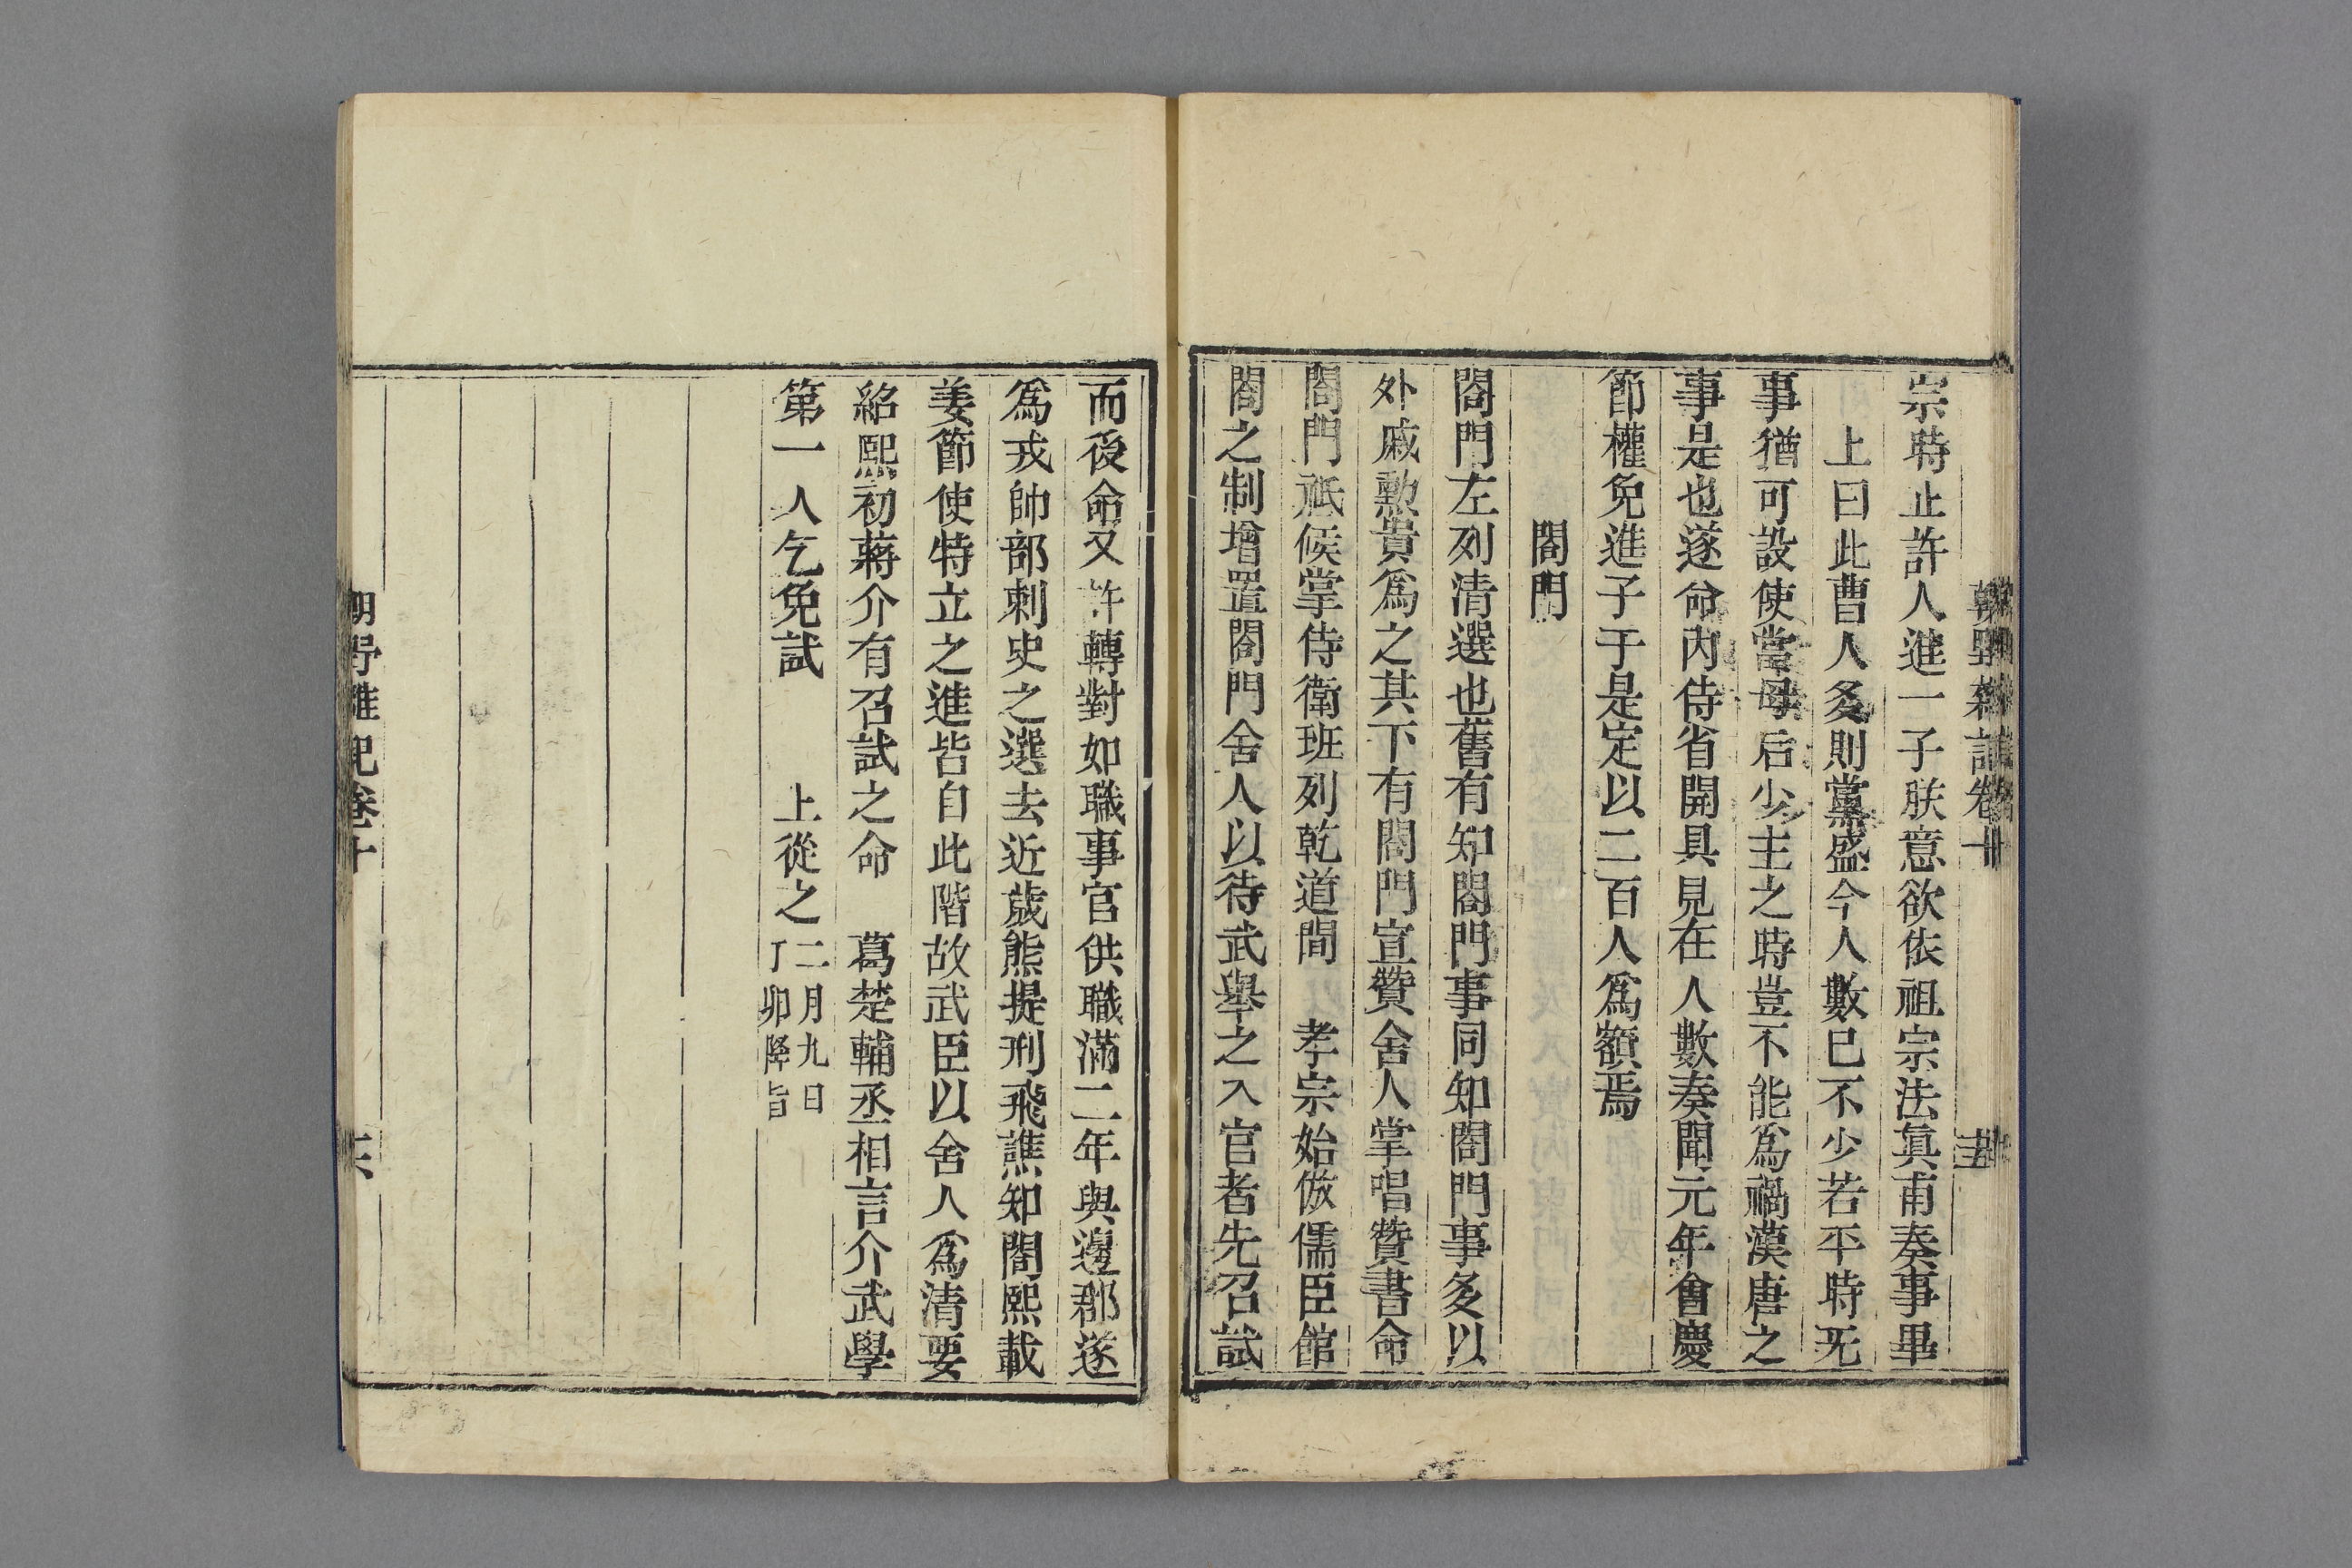 朝野雜記卷十
十五
宗時止許人進一子朕意欲依祖宗法眞甫奏事畢
上曰此曹人多則黨盛今人數已不少若平時无
事猶可設使當母后少主之時豈不能爲禍漢唐之
事是也遂命內侍省開具見在人數奏聞元年會慶
節權免進子于是定以二百人爲額焉
閤門
閤門左列清選也舊有知閤門事同知閤門事多以
外戚勲貴爲之其下有閤門宣贊舍人掌唱贊書命
閤門祇候掌侍衛班列乾道間　孝宗始倣儒臣館
閣之制增置閤門舍人以待武舉之入官者先召試
而後命又許轉對如職事官供職滿二年與邊郡遂
爲戎帥部刺史之選去近歲熊提刑飛譙知閤熙載
姜節使特立之進皆自此階故武臣以舍人爲清要
紹熙初蔣介有召試之命　葛楚輔丞相言介武學
第一人乞免試　　上從之二月九日
丁卯降旨
朝野雜記卷十
十六